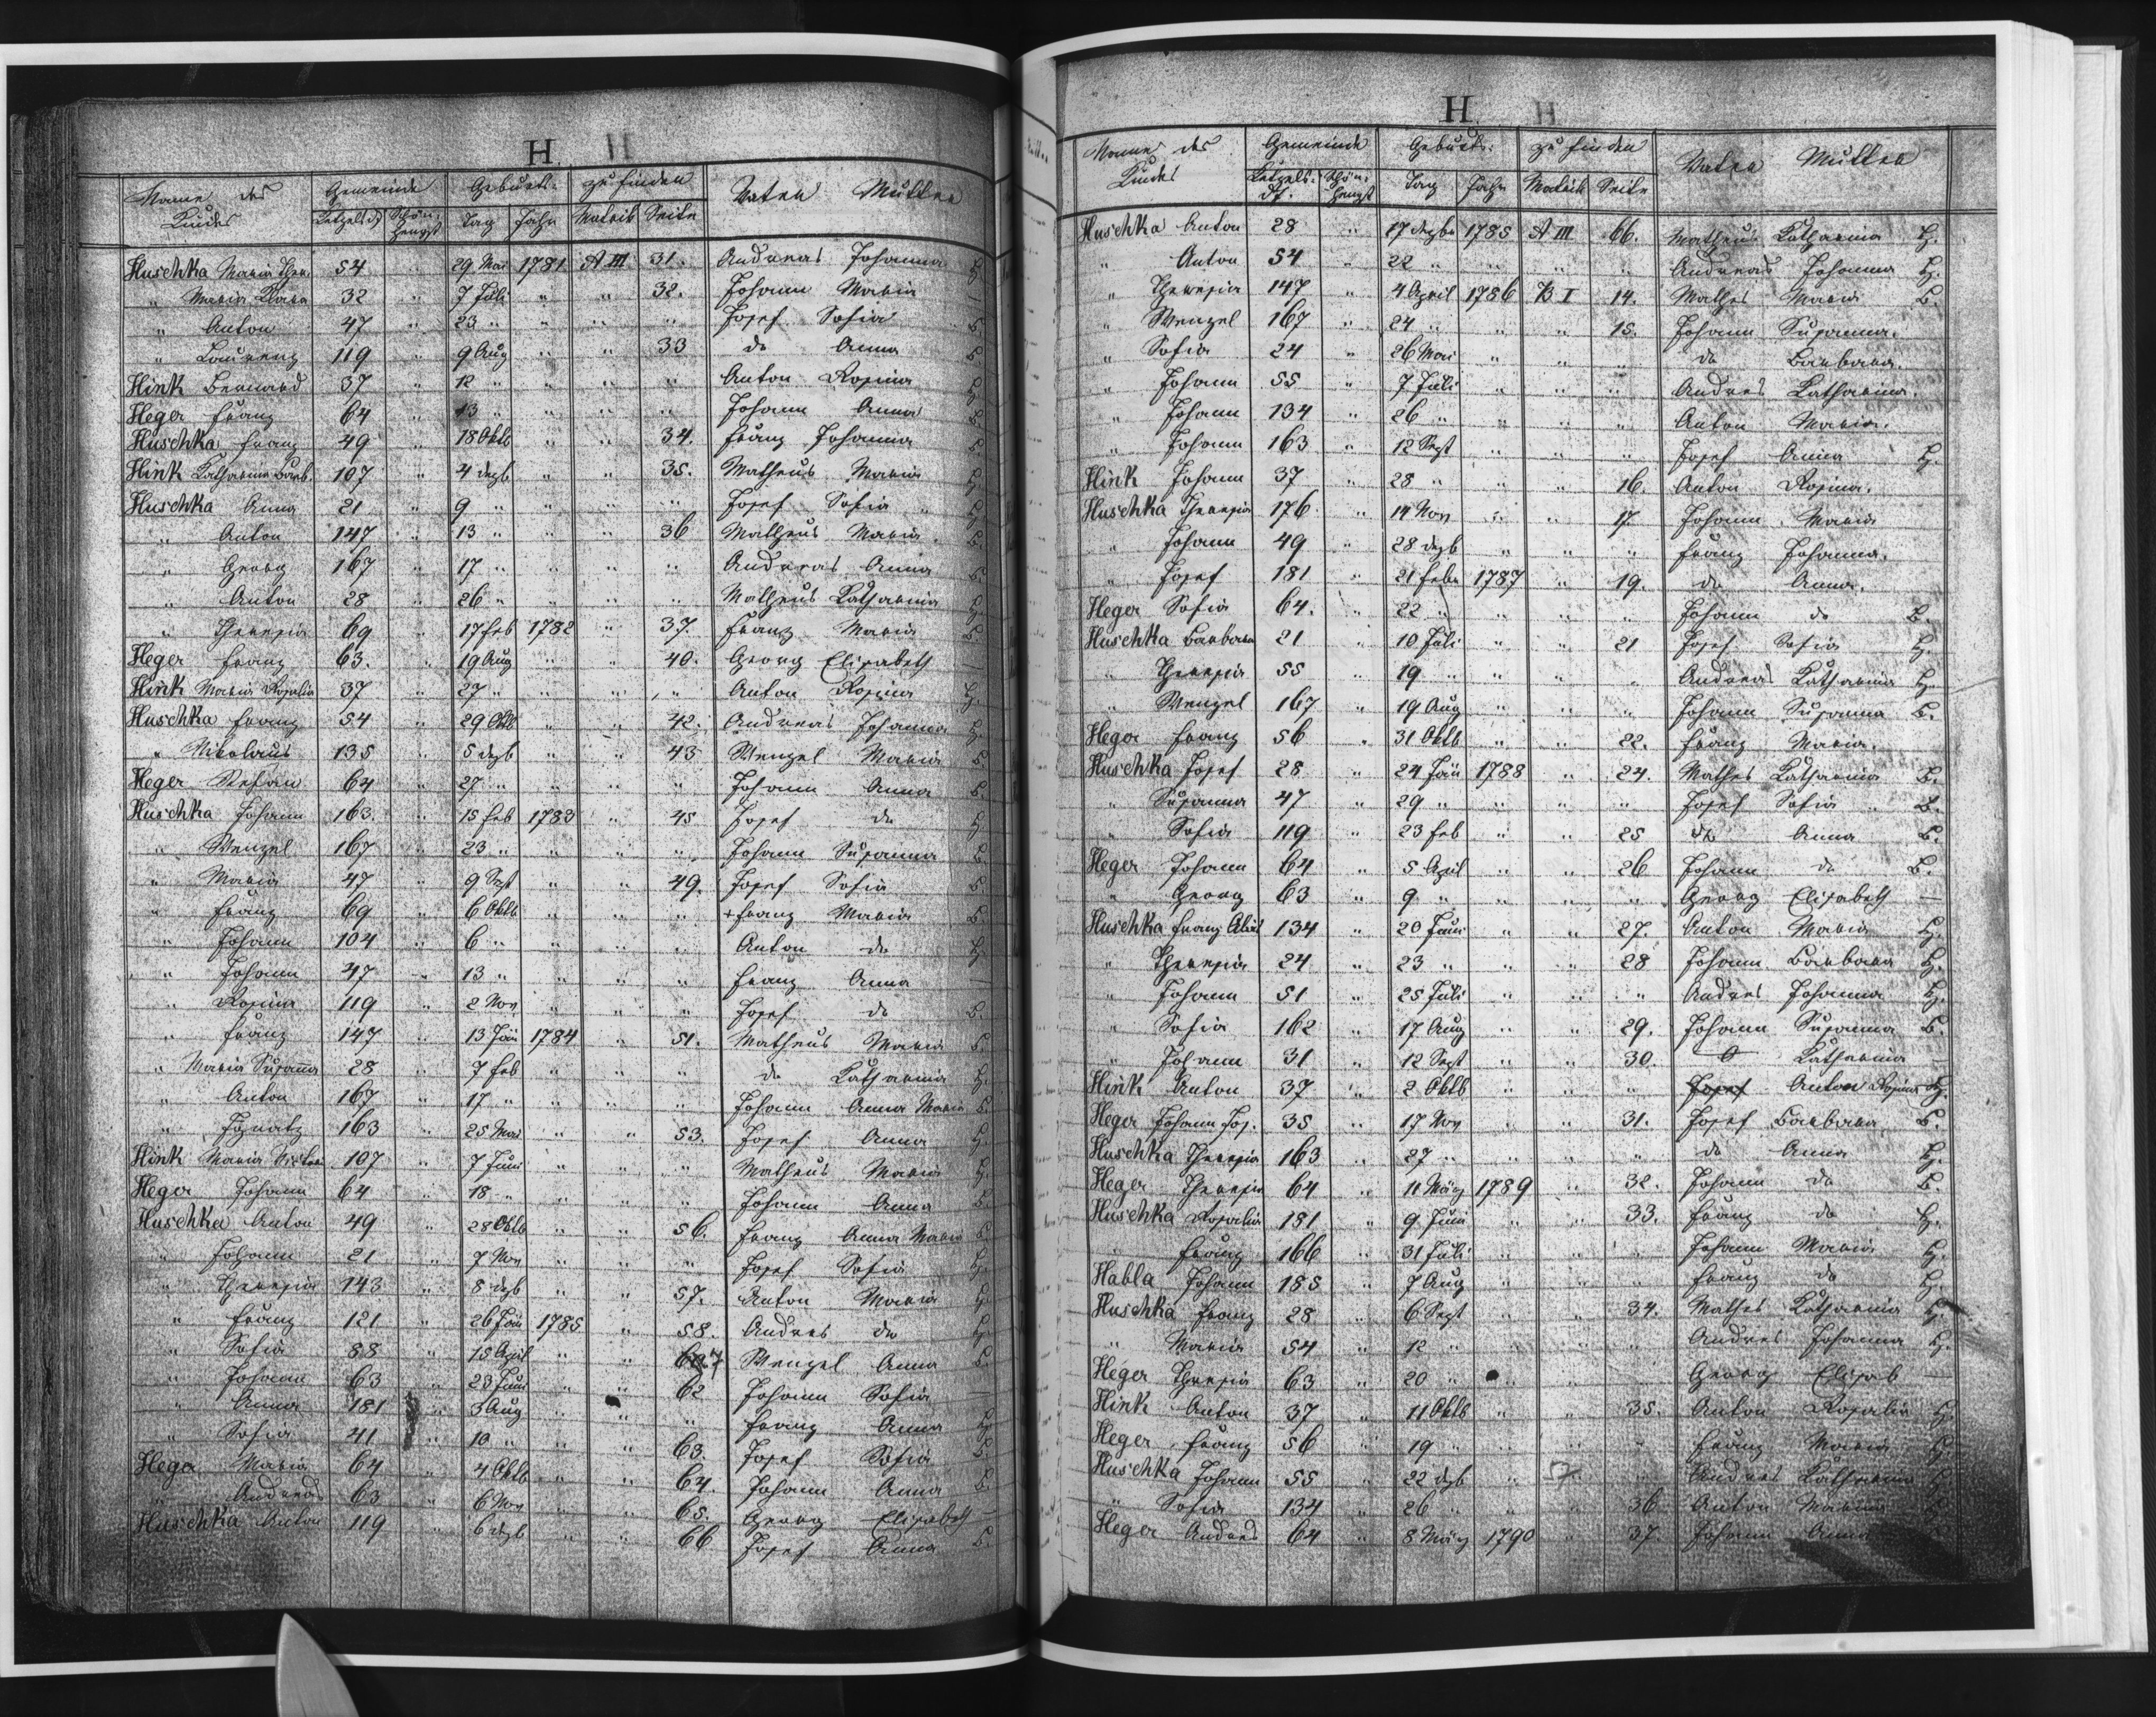 H. H
Name des Kindes Gemeinde Geburts- zu finden Vater Mutter
Ketzelsdf Schön-hengst Tag Jahr Matrik Seite
Huschka Maria Ther. 54 " 29 Mai 1781 A III 31. Andreas Johanna H
" Maria Klara 32 " 7 Juli " " 32. Johann Maria –
" Anton 47 " 23 " " " " Josef Sofia B.
" Laurenz 119 " 9 Aug " " 33 do Anna B.
Hink Bernard 37 " 12 " " " " Anton Rosina H
Heger Franz 64 " 13 " " " " Johann Anna B.
Huschka Franz 49 " 18 Oktb " " 34. Franz Johanna B
Hink Katharina Barb. 107 " 4 dezb " " 35. Matheus Maria H
Huschka Anna 21 " 9 " " " " Josef Sofia H
" Anton 147 " 13 " " " 36 Matheus Maria B.
" Georg 167 " 17 " " " " Andreas Anna B.
" Anton 28 " 26 " " " " Matheus Katharina H
" Theresia 69 " 17 Feb 1782 " 37. Franz Maria B.
Heger Franz 63. " 19 Aug " " 40. Georg Elisabeth –
Hink Maria Rosalia 37 " 27 " " " " Anton Rosina H.
Huschka Franz 54 " 29 Oktb " " 42. Andreas Johanna H.
" Nikolaus 135 " 5 dezb " " 43 Wenzel Maria B
Heger Stefan 64 " 27 " " " " Johann Anna B.
Huschka Johann 163. " 15 Feb 1783 " 45 Josef do H
" Wenzel 167 " 23 " " " " Johann Susanna B.
" Maria 47 " 9 Sept " " 49. Josef Sofia B
" Franz 69 " 6 Oktb " " " + Franz Maria B.
" Johann 104 " 6 " " " " Anton do H
" Johann 47 " 13 " " " " Franz Anna –
" Rosina 119 " 2 Nov " " " Josef do B.
" Franz 147 " 13 Jän 1784 " 51. Matheus Maria B.
" Maria Susanna 28 " 7 Feb " " " do Katharina H.
" Anton 167 " 17 " " " " Johann Anna Maria B.
" Ignatz 163 " 25 Mai " " 53. Josef Anna H
Hink Maria 107 " 7 Juni " " " Matheus Maria H
Heger Johann 64 " 18 " " " " Johann Anna B
Huschka Anton 49 " 28 Oktb " " 56. Franz Anna Maria B
" Johann 21 " 7 Nov " " " Josef Sofia H.
" Theresia 143 " 8 dezb " " 57. Anton Maria H
" Franz 121 " 26 Jän 1785 " 58. Andres do H
" Sofia 88 " 15 April " " Wenzel Anna B.
" Johann 63 " 23 Juni " " 62 Johann Sofia –
" Anna 181 " 3 Aug " " " Franz Anna H
" Sofia 41 " 10 " " " 63. Josef Sofia B.
Heger Maria 64 " 4 Oktb " " 64. Johann Anna B
" Andreas 63 " 6 Nov " " 65. Georg Elisabeth –
Huschka Anton 119 " 6 dezb " " 66 Josef Anna B
H. H
Name des Kindes Gemeinde Geburts- zu finden Vater Mutter
Ketzels-df. Schön-hengst Tag Jahr Matrik Seite
Huschka Anton 28 " 17 dezbr 1785 A III 66. Matheus Katharina H.
" Anton 54 " 22 " " " " Andreas Johanna H.
" Theresia 147 " 4 April 1786 B I 14. Mathes Maria B.
" Wenzel 167 " 24 " " " 15. Johann Susanna.
" Sofia 24 " 26 Mai " " " do Barbara.
" Johann 55 " 7 Juli " " " Andres Katharina.
" Johann 134 " 26 " " " " Anton Maria.
" Johann 163 " 12 Sept " " " Josef Anna H.
Hink Johann 37 " 28 " " " 16. Anton Rosina.
Huschka Theresia 176. " 14 Nov " " 17. Johann Maria
" Johann 49 " 28 dezb " " " Franz Johanna.
" Josef 181 " 21 Febr 1787 " 19. do Anna.
Heger Sofia 64. " 22 " " " " Johann do B.
Huschka Barbara 21 " 10 Juli " " 21 Josef Sofia H.
" Theresia 55 " 19 " " " " Andreas Katharina H.
" Wenzel 167 " 19 Aug " " " Johann Susanna B.
Heger Franz 56 " 31 Oktb " " 22. Franz Maria.
Huschka Josef 28 " 24 Jän 1788 " 24. Mathes Katharina B.
" Susanna 47 " 29 " " " " Josef Sofia B.
" Sofia 119 " 23 Feb " " 25 do Anna B.
Heger Johann 64 " 5 April " " 26 Johann do B.
" Georg 63 " 9 " " " " Georg Elisabeth –
Huschka Franz Alois 134 " 20 Juni " " 27. Anton Maria H.
" Theresia 24 " 23 " " " 28 Johann Barbara H.
" Johann 51 " 25 Juli " " " Andres Johanna H.
" Sofia 162 " 17 Aug " " 29. Johann Susanna B.
" Johann 31 " 12 Sept " " 30. 0 Katharina –
Hink Anton 37 " 2 Oktb " " " Josef Anton Rosina H.
Heger Johann Jos. 35 " 17 Nov " " 31. Josef Barbara B.
Huschka Theresia 163 " 27 " " " " do Anna H.
Heger Theresia 64 " 11 März 1789 " 32. Johann do B.
Huschka Rosalia 181 " 9 Juni " " 33. Franz do H.
" Franz 166 " 31 Juli " " " Johann Maria H.
Habla Johann 185 " 7 Aug " " " Franz do H
Huschka Franz 28 " 6 Sept " " 34. Mathes Katharina H.
" Maria 54 " 12 " " " " Andres Johanna H.
Heger Theresia 63 " 20 " " " Georg Elisab –
Hink Anton 37 " 11 Oktb " " 35. Anton Rosalia H
Heger Franz 56 " 19 " " " " Franz Maria H
Huschka Johann 55 " 22 dezb " 57 " Andres Katharina H
" Sofia 134 " 26 " " " 36 Anton Maria H
Heger Andres 64 " 8 März 1790 " 37. Johann Anna